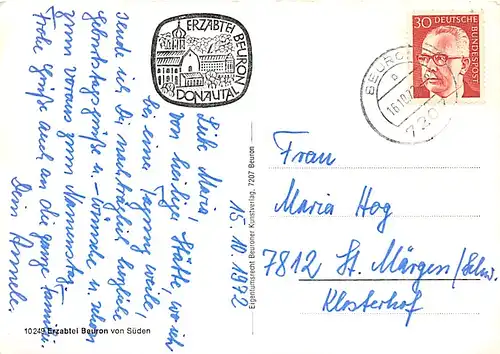 ERZABTEI BEURON
DONAUTAL
30 DEUTSCHE
BUNDESPOST
BEURON
16.10.72
7207
15.10.1972
Liebe Maria,
von heiliger Stätte, wo ich
bei einer Tagung weile,
sende ich Dir nachträglich herzliche
Geburtstagsgrüße u. -wünsche u. schon
zum voraus zum Namenstag.
Frohe Grüße auch an die ganze Familie.
Dein
Frau
Maria Hog
7812 St. Märgen/Schw.
Klosterhof
Eigentumsrecht Beuroner Kunstverlag, 7207 Beuron
10249 Erzabtei Beuron von Süden